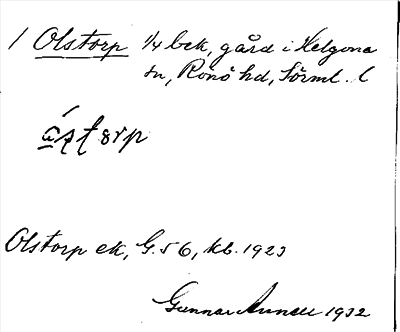 1 Olstorp 1/4 bek, gård i Helgona
sn, Rönö hd, Sörml. l
Olstorp ek, G. 56, kb. 1923
Gunnar 1932